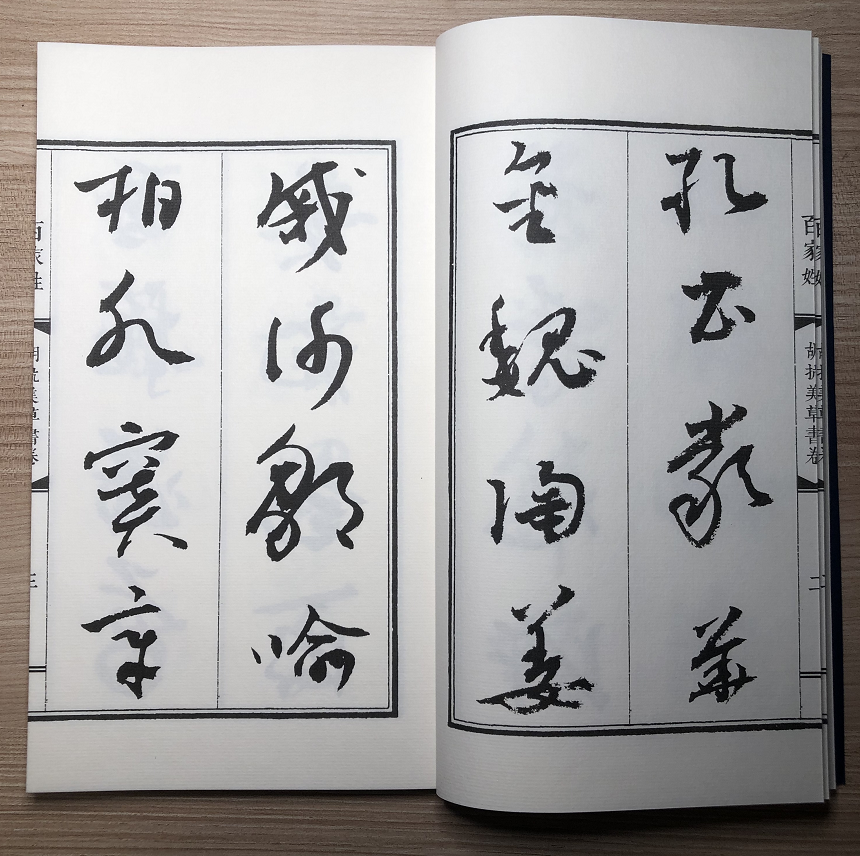 百家姓
胡抗美草書卷
二
孔曹嚴華
金魏陶姜
戚謝鄒喻
柏水竇章
百家姓
胡抗美草書卷
三